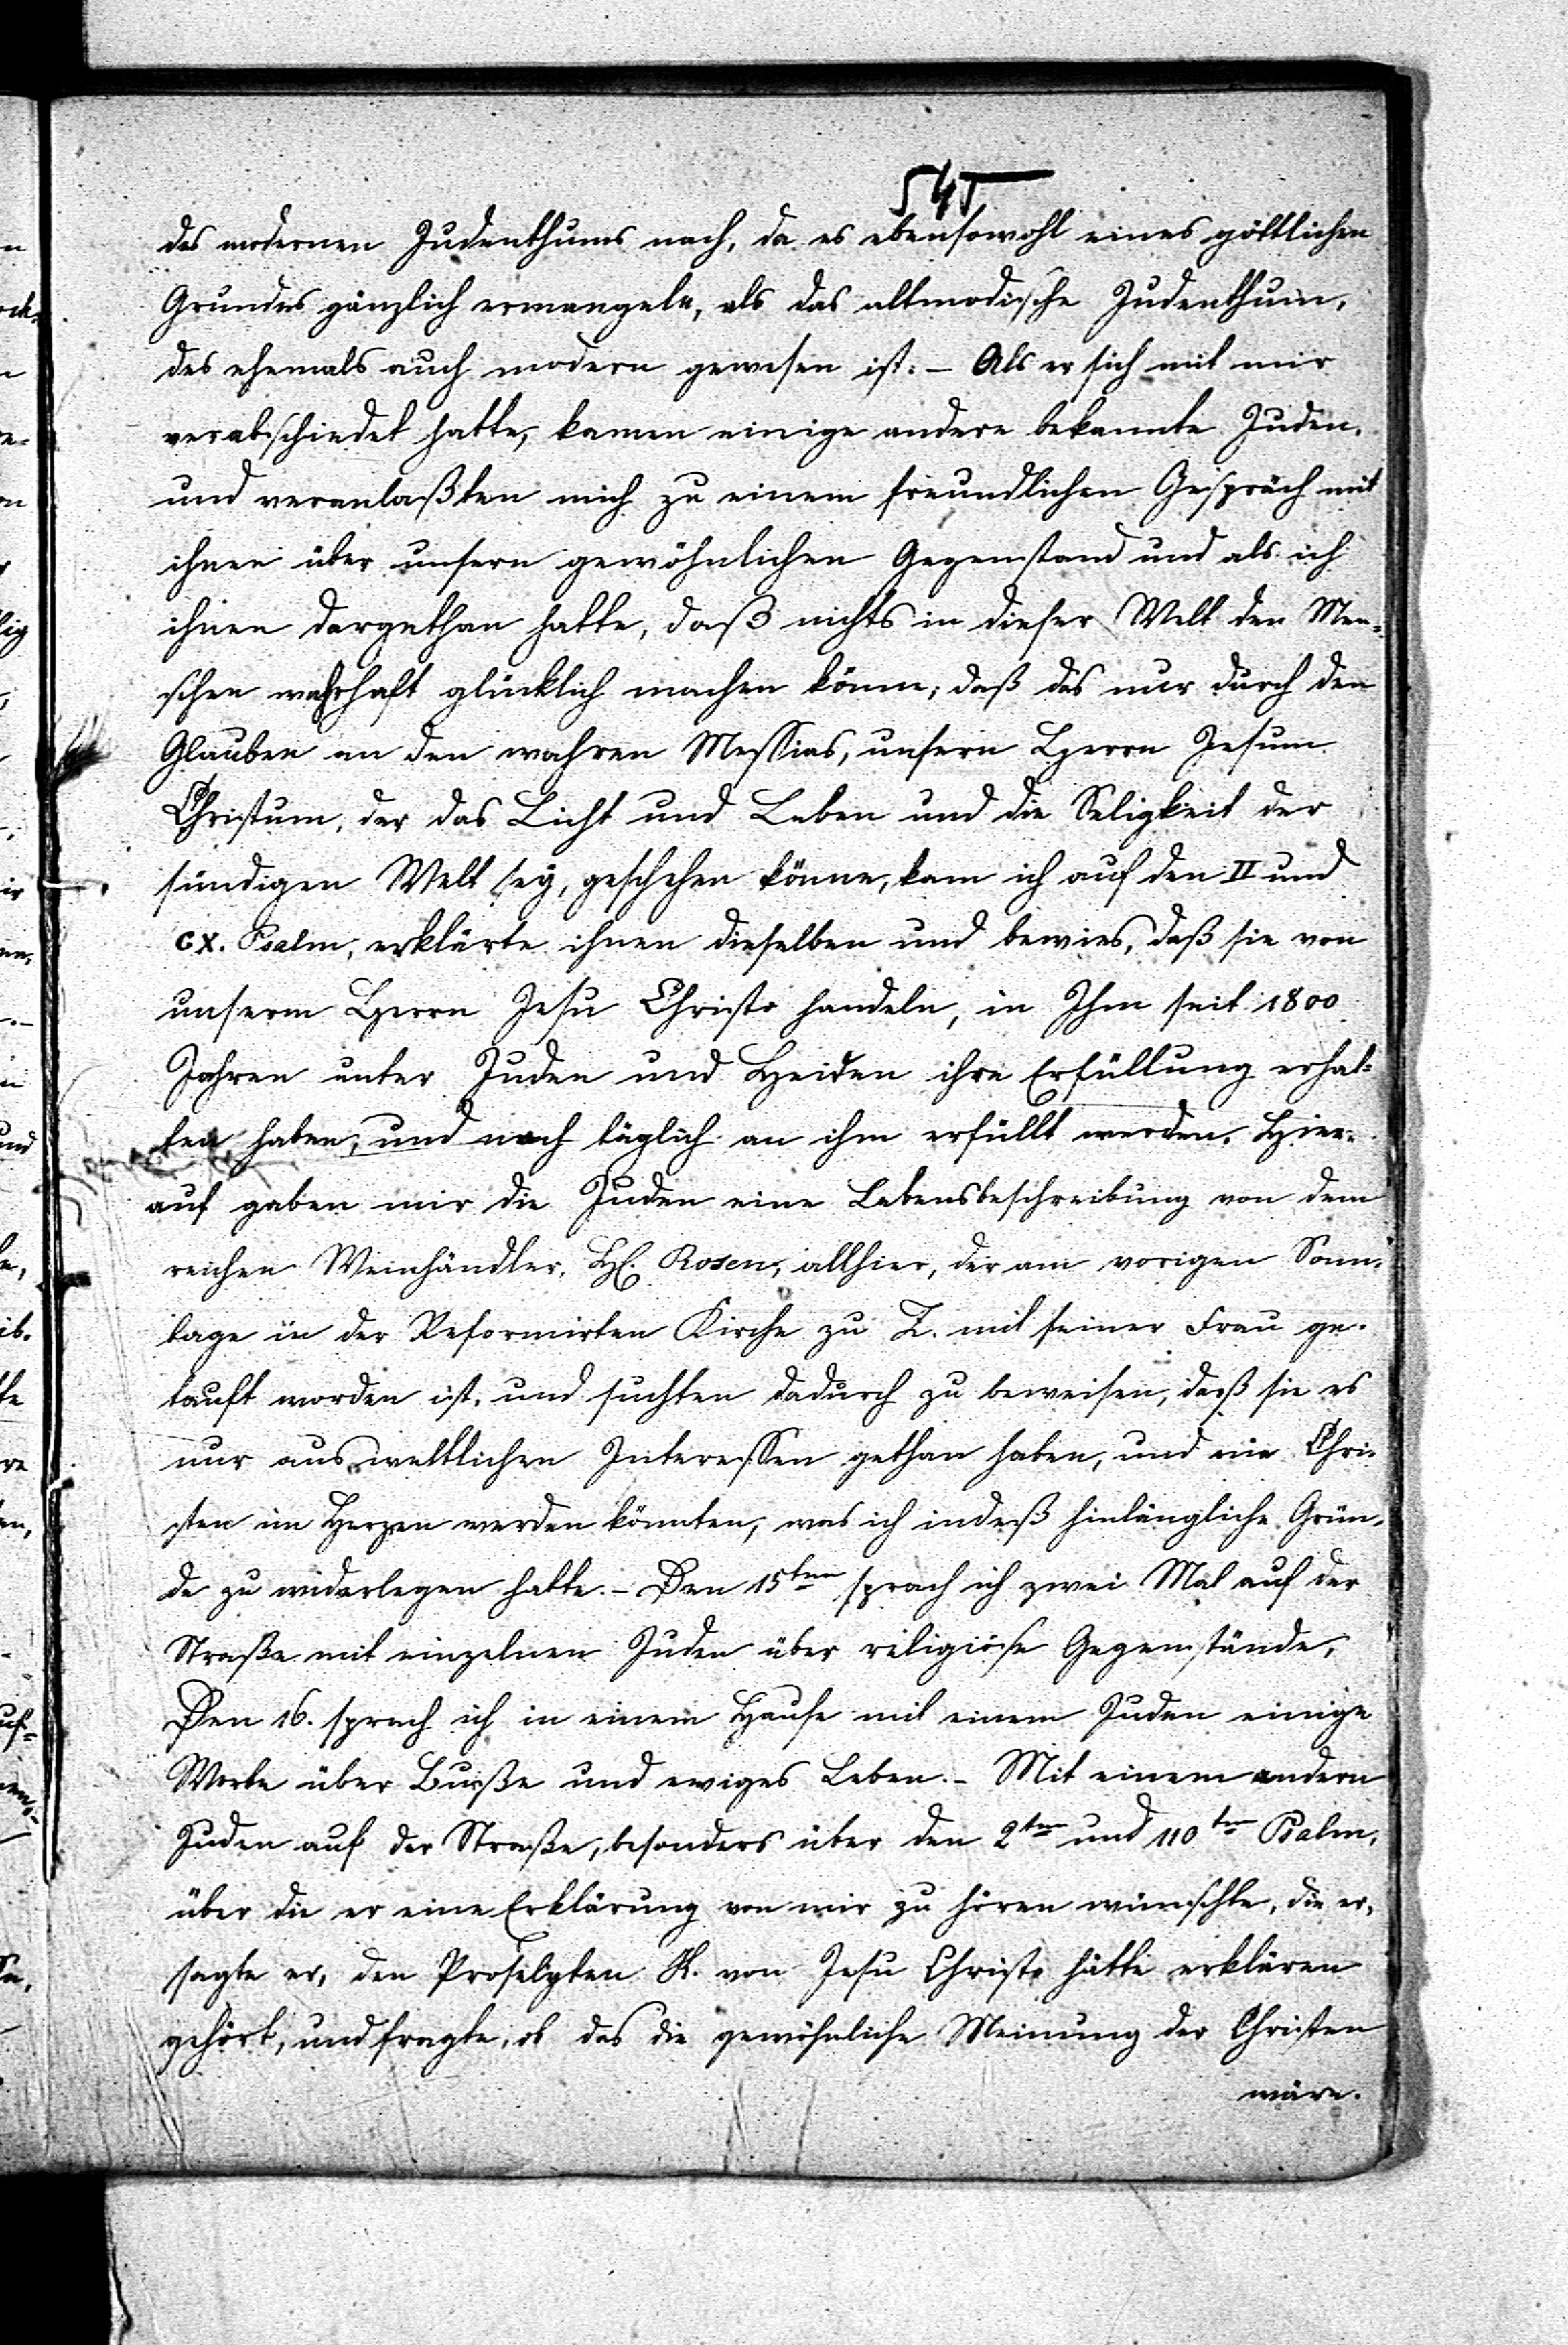 545
des modernen Judenthums nach, da es ebensowohl eines göttlichen
Grundes gänzlich ermangele, als das altmodische Judenthum,
das ehemals auch modern gewesen ist. – Als er sich mit mir
verabschiedet hatte, kamen einige andere bekannte Juden,
und veranlaßten mich zu einem freundlichen Gespräch mit
ihnen über unsern gewöhnlichen Gegenstand und als ich
ihnen dargethan hatte, daß nichts in dieser Welt den Men-
schen wahrhaft glücklich machen könne; daß das nur durch den
Glauben an den wahren Messias, unsern Herrn Jesum
Christum, der das Licht und Leben und die Seligkeit der
sündigen Welt sey, geschehen könne, kam ich auf den II und
CX. Psalm, erklärte ihnen dieselben und bewies, daß sie von
unserm Herrn Jesu Christo handeln, in Ihm seit 1800
Jahren unter Juden und Heiden ihre Erfüllung erhal-
ten haben, und noch täglich an ihm erfüllt werden. Hier-
auf gaben mir die Juden eine Lebensbeschreibung von dem
reichen Weinhändler, H. Rosen, allhier, der am vorigen Sonn-
tage in der Reformirten Kirche zu Z. mit seiner Frau ge-
tauft worden ist, und suchten dadurch zu beweisen, daß sie es
nur aus weltlichen Interessen gethan haben, und nie Chri-
sten im Herzen werden könnten, was ich indeß hinlängliche Grün-
de zu widerlegen hatte. – Den 15ten sprach ich zwei Mal auf der
Straße mit einzelnen Juden über religiöse Gegenstände,
Den 16. sprach ich in einem Hause mit einem Juden einige
Worte über Buße und ewiges Leben. – Mit einem andern
Juden auf der Straße, besonders über den 2ten und 110ten Psalm,
über die er eine Erklärung von mir zu hören wünschte, die er,
sagte er, den Proselyten K. von Jesu Christo hätte erklären
gehört, und fragte, ob das die gewöhnliche Meinung der Christen
wäre.